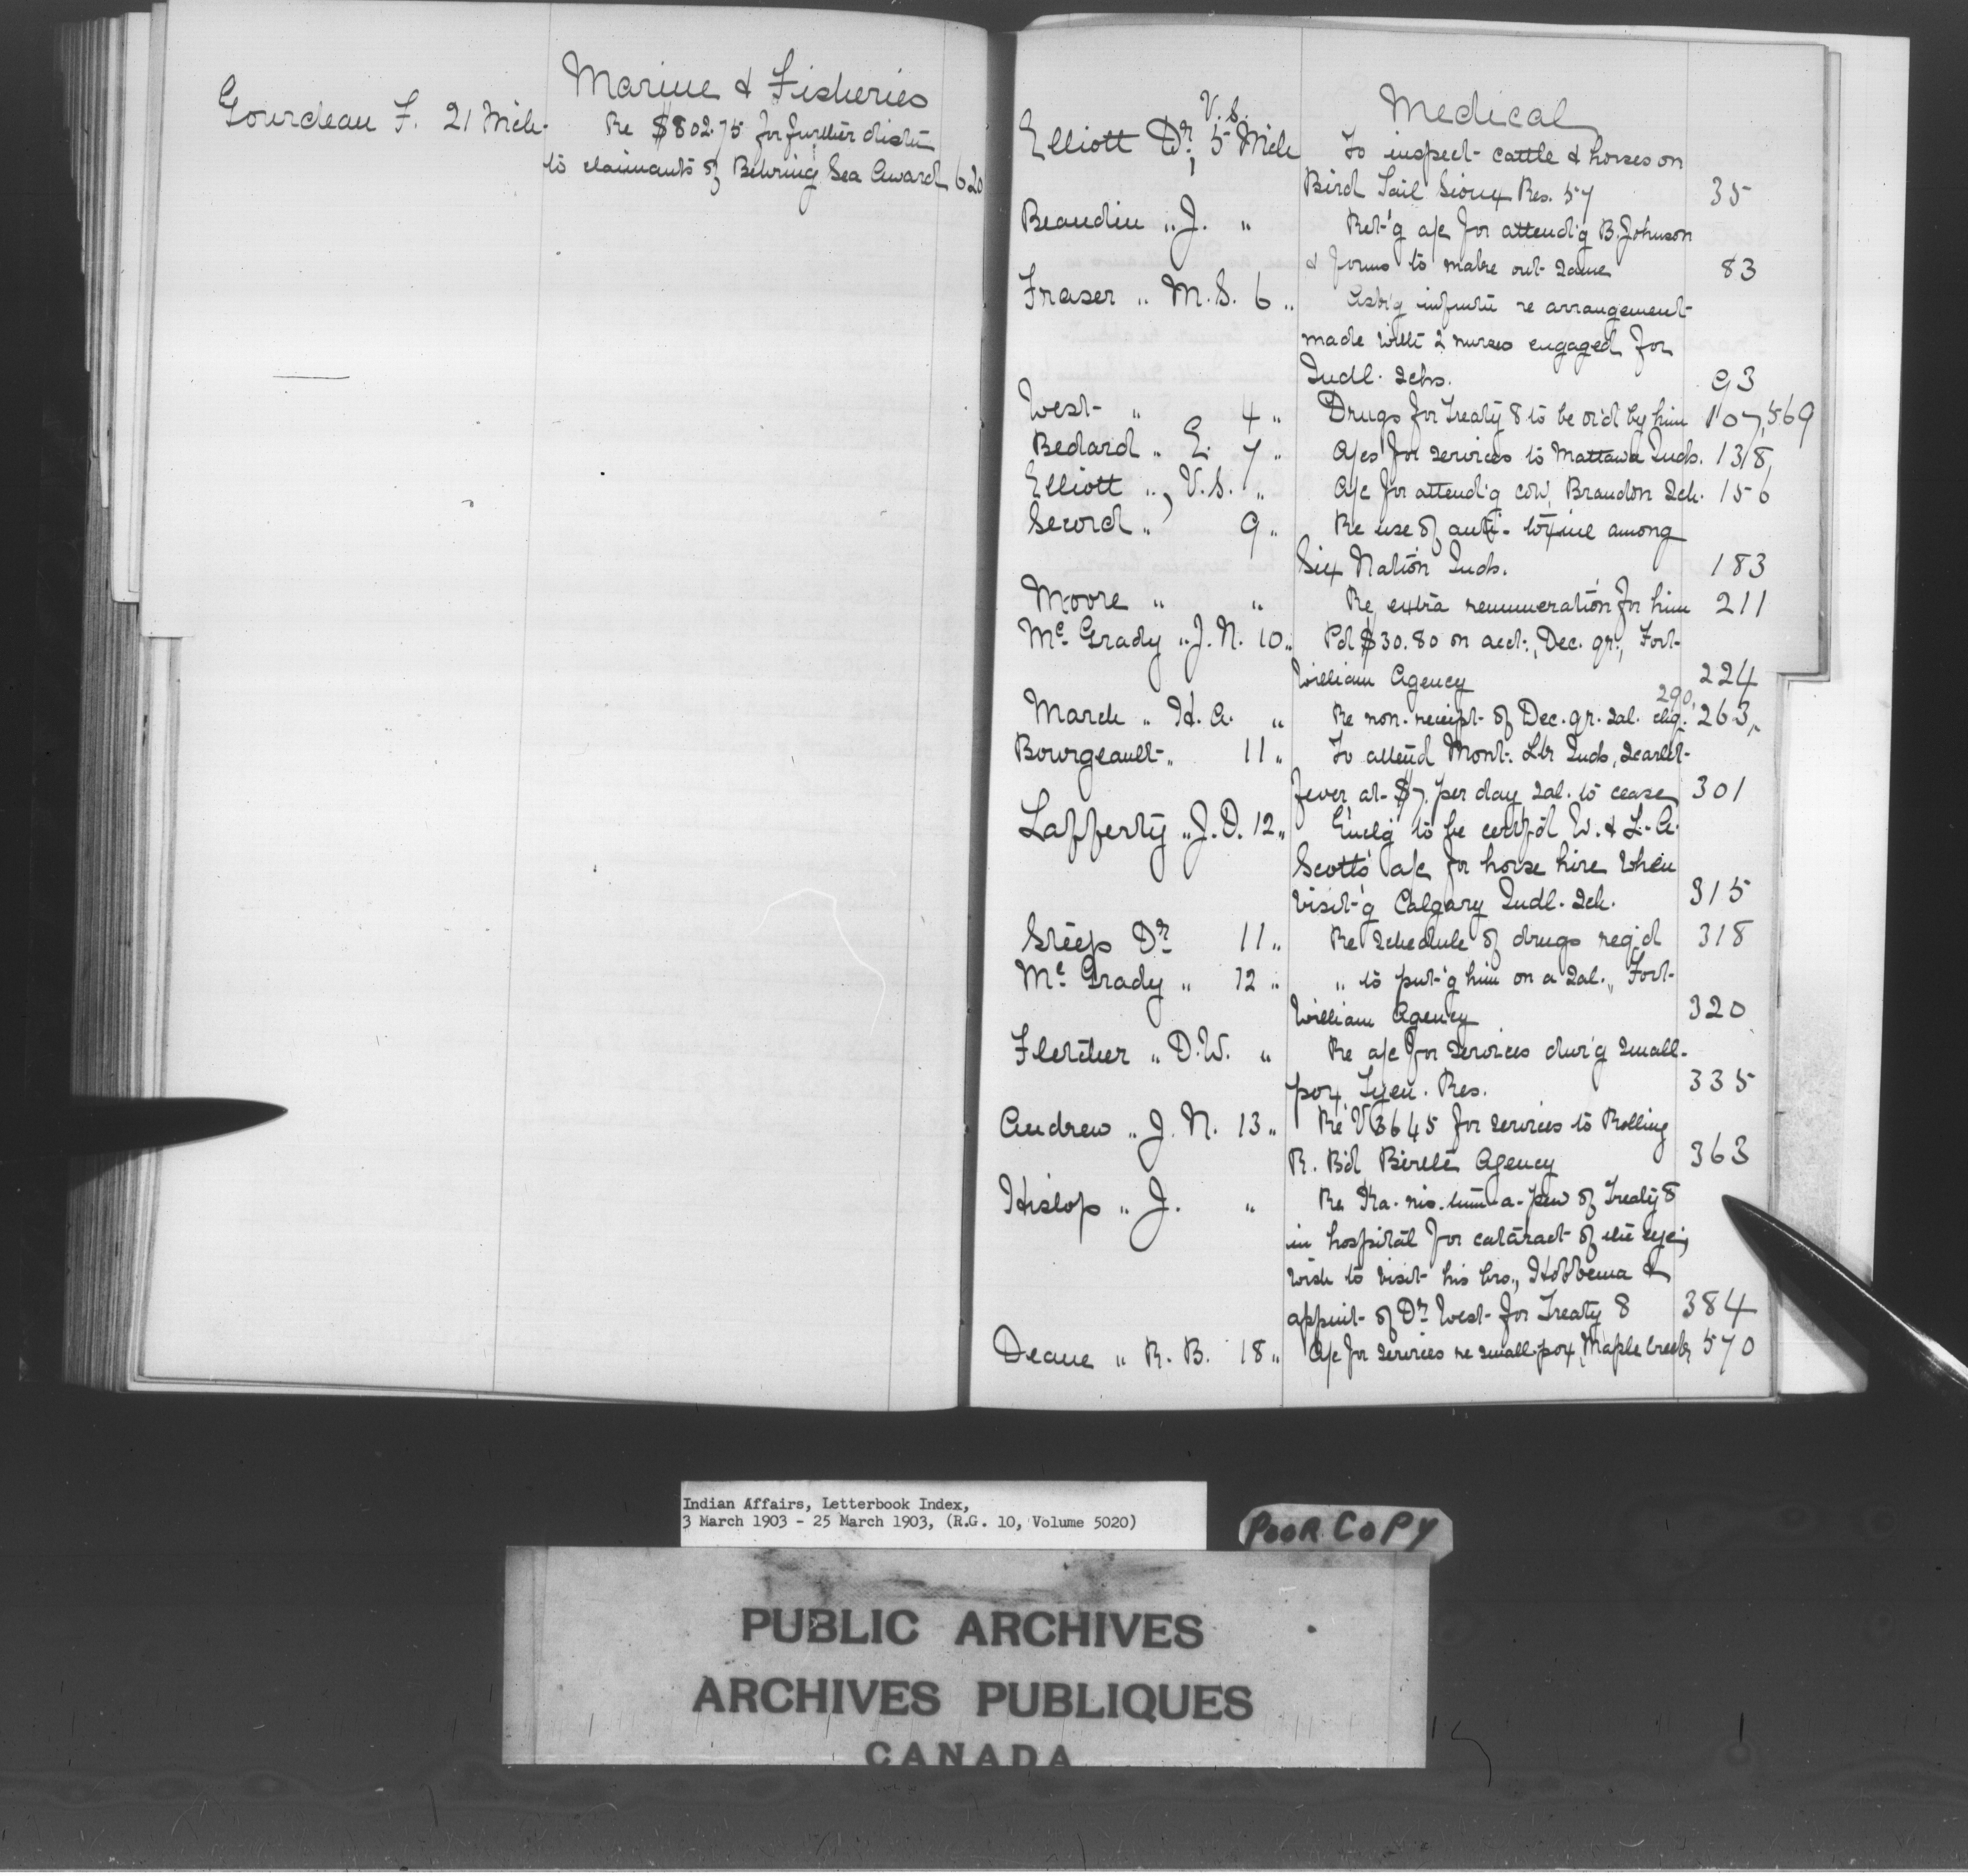 Marine & Fisheries
Gourdeau F. 21 Mch. Re $802.75 for further distn
to claimants of Behring Sea Award 620
Medical
V.S.
Elliott Dr, 5 Mch To inspect cattle & horses on
Bird Tail Sioux Res. 57 35
Beaudin " J. " Ret'g a/c for attend'g B. Johnson
& forms to make out same 83
Fraser " M.S. 6 " Ask'g infmtn re arrangement
made with 2 nurses engaged for
Indl. Schs. 93
West " 4 " Drugs for Treaty 8 to be or'd by him 107, 569
Bedard " E. 7 " A/cs for services to Mattawa Inds. 131/8,
Elliott ", V.S. " A/c for attend'g cow, Brandon Sch. 156
Secord " 9 " Re use of anti-toxine among
Six Nation Inds. 183
Moore " " Re extra remuneration for him 211
Mc Grady " J.N. 10 " Pd $30.80 on acct., Dec. qr., Fort
William Agency 224
290,
March " H.A. " Re non-receipt of Dec. qr. sal. chq. 263,
Bourgeault " 11 " To attend Mont. Ltr Inds, scarlet
fever at $7. per day sal. to cease 301
Lafferty " J.D. 12 " Encl'g to be certf'd W. & L.A.
Scott's a/c for horse hire when
visit'g Calgary Indl. Sch. 315
Steep Dr 11 " Re schedule of drugs req'd 318
Mc Grady " 12 " " to put'g him on a sal., Fort
William Agency 320
Fletcher " D.W. " Re a/c for services dur'g small-
pox, Tyen. Res. 335
Andrew " J.N. 13 " Re V3645 for services to Rolling
R. Bd Birtle Agency 363
Hislop " J. " Re Ka-nis-tum-a-pew of Treaty 8
in hospital for cataract of the eye;
wish to visit his bro., Hobbema &
appmt of Dr West for Treaty 8 384
Deane " R.B. 18 " A/c for services re smallpox, Maple Creek 570
Indian Affairs, Letterbook Index,
3 March 1903 - 25 March 1903, (R.G. 10, Volume 5020)
POOR COPY
PUBLIC ARCHIVES
ARCHIVES PUBLIQUES
CANADA